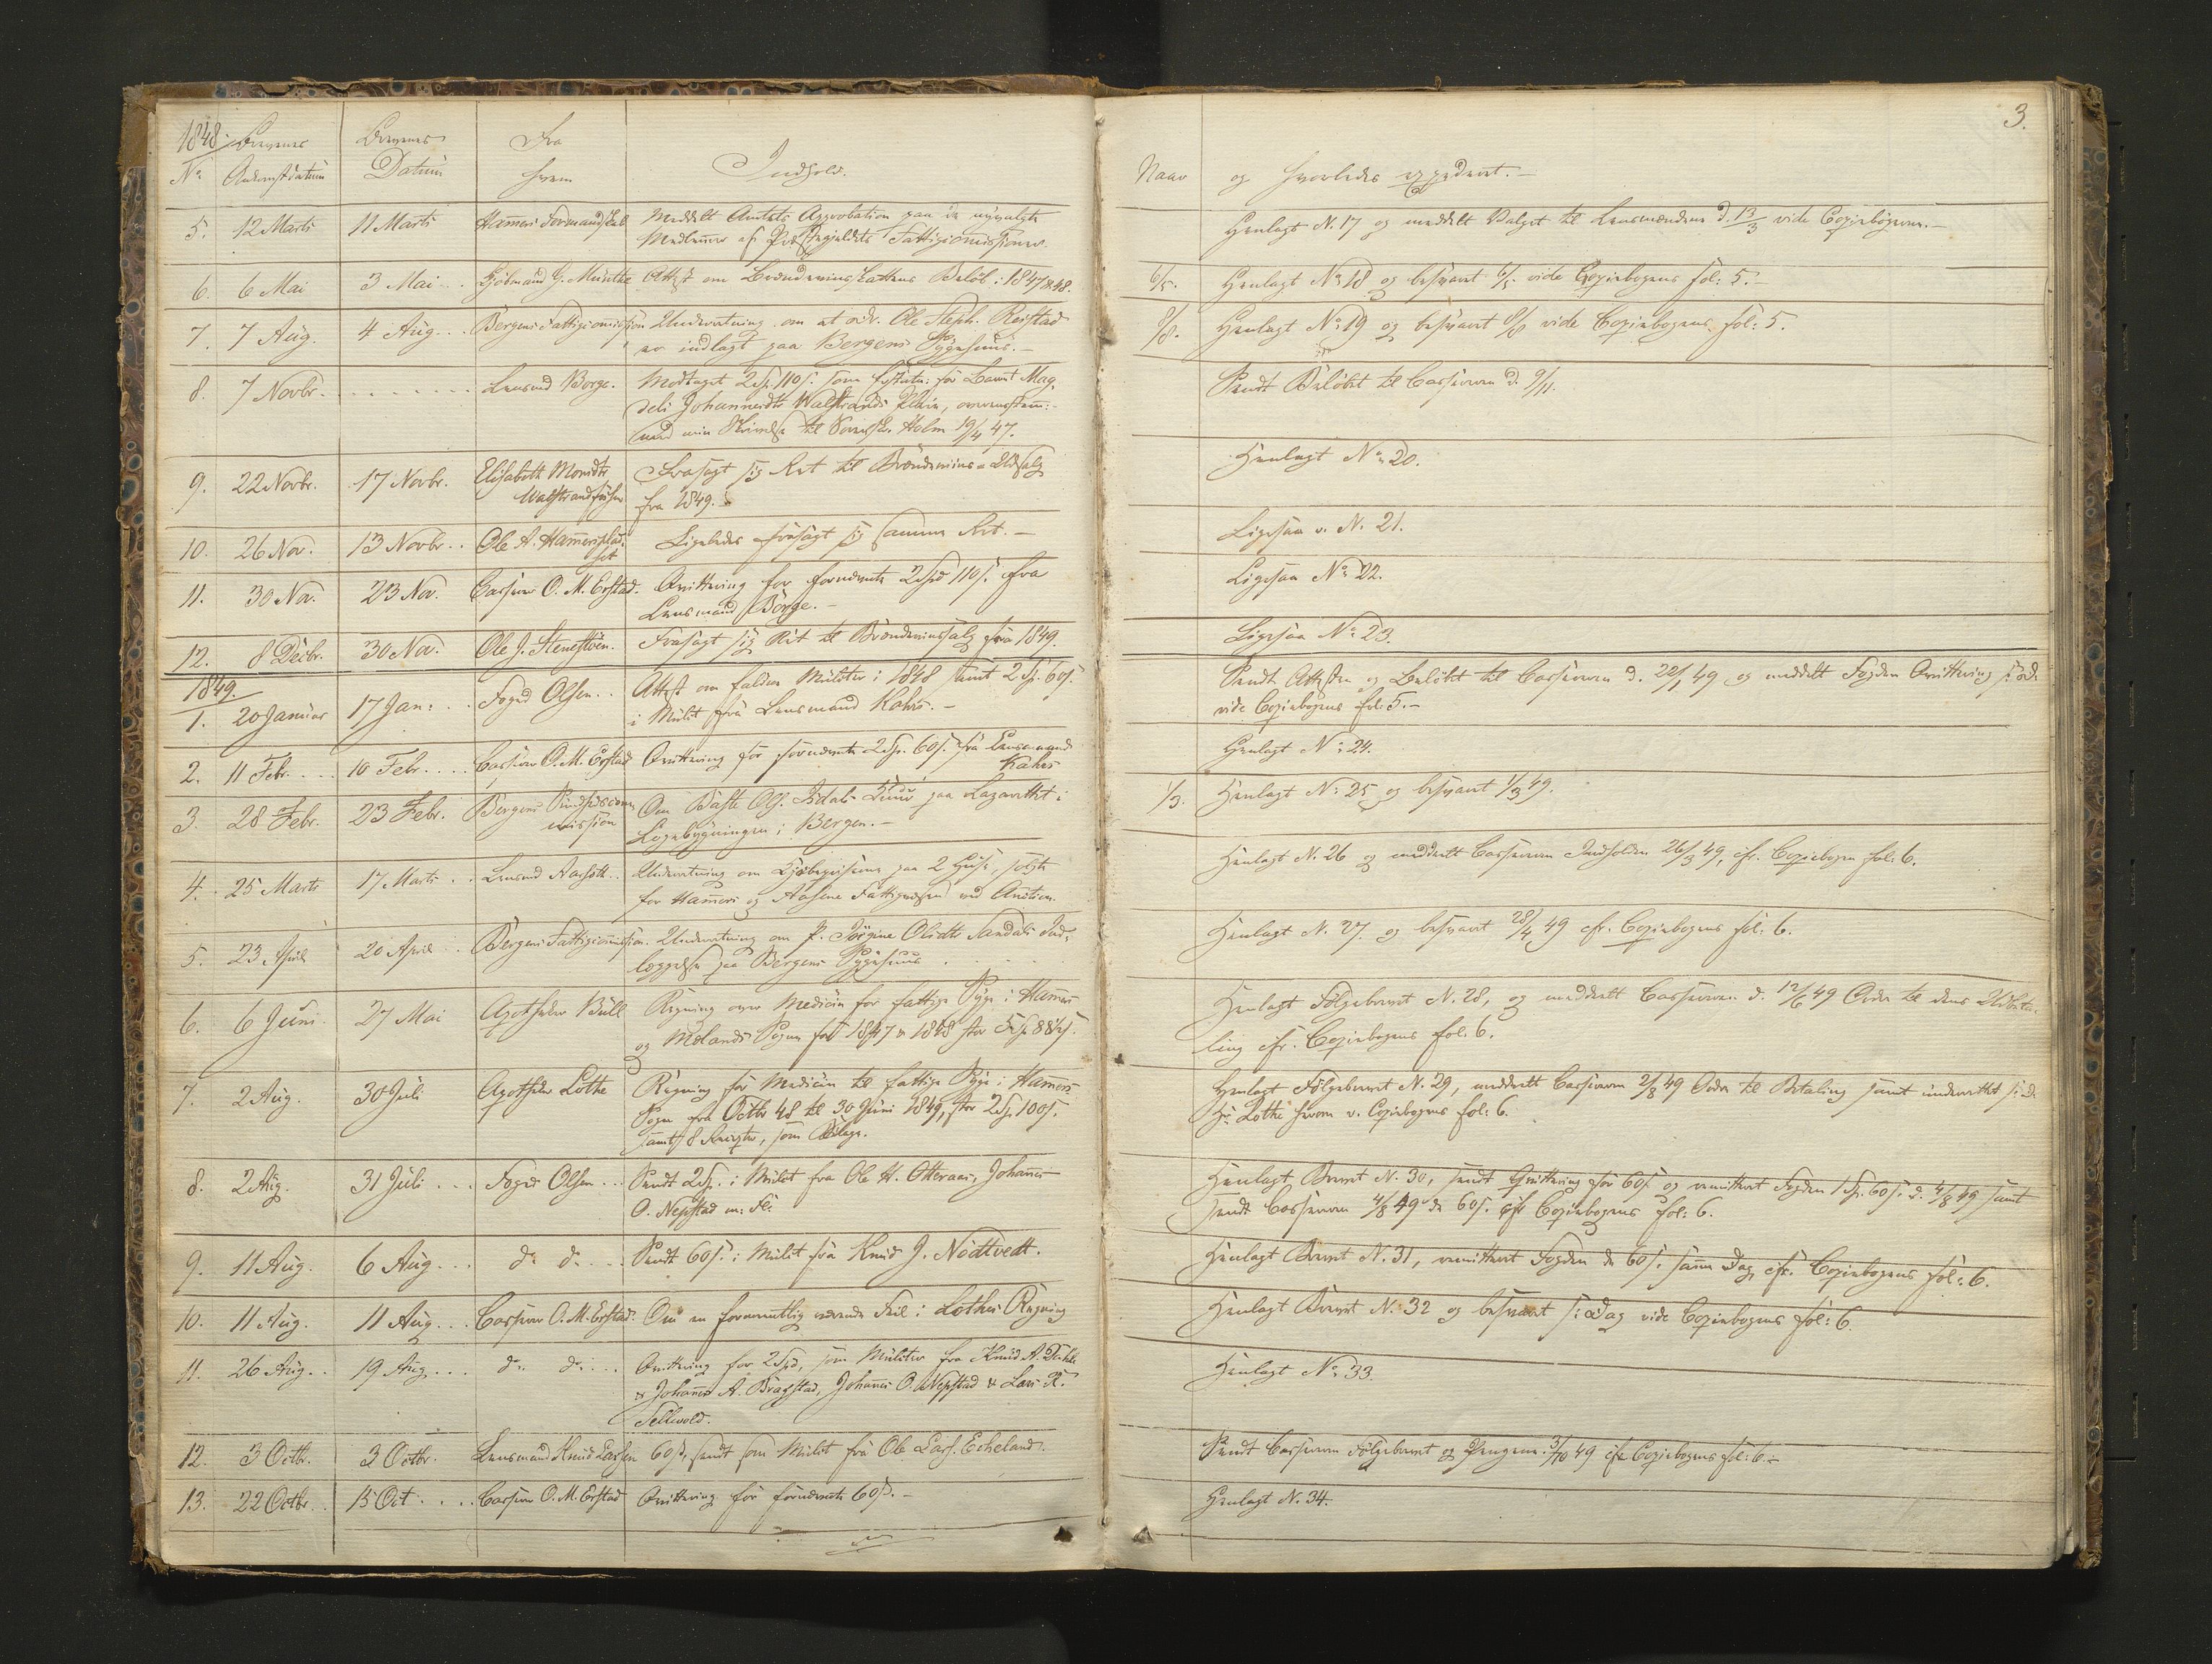 1848 Brevenes Brevenes Fra
No Ankomstdatum Datum hvem Indhold.
5. 12 Marts 11 Marts Hammers Formandskab Meddelt Amtets Approbation paa de nyvalgte
Medlemmer af Præstegjeldets Fattigcomissioner.
6. 6 Mai 3 Mai Kjøbmand G. Munthe Attest om Brændeviinsskattens Beløb i 1847 & 48.
7. 7 Aug. 4 Aug... Bergens Fattigcomission Underretning om at Ole Steph. Reistad
er indlagt paa Bergens Sygehuus.-
8. 7 Novbr. Lensmd Borge. Modtaget 2 Sp 110 s. som for Barnet Mag.
deli Johannesdtr Walstrands Pleie, overensstem:
med min Skrivelse til Sorensk. Holm 19/4 47.
9. 22 Novbr. 17 Novbr. Elisabeth Monsdtr Frasagt sig Ret til Brændeviins Udsalg
Walstrandfossen fra 1849.
10. 26 Nov. 13 Novbr.. Ole A. Hammersplad- Ligeledes frasagt sig samme Ret.-
set
11. 30 Nov. 23 Nov. Casserer O. M. Erstad. Qvittering for fornævnte 2 Spd 110 s. fra
Lensmand Børge.-
12. 8 Decbr. 30 Nov. Ole J. Stenestøen. Frasagt sig Ret til Brændeviinssalg fra 1849.
1849.
1. 20 Januar 17 Jan:.. Foged Olsen.. Attest om faldne Mulcter i 1848 samt 2 Sp. 60 s.
i Mulct fra Lensmand Kahrs.-
2. 11 Febr.... 10 Febr.... Casserer O. M. Erstad Qvittering for fornævnte 2 Sp. 60 s. fra Lensmand
Kahrs
3. 28 Febr. 23 Febr. Bergens Sundhedscom Om Ols. Isdals paa Lazarettet i
mission Logebygningen i Bergen.-
4. 25 Marts 17 Marts.. Lensmd Underretning om paa 2 Huse, solgte
for Hammers og Aasene Fattigvæsen ved Auction.
5. 23 April 20 April.. Bergens Fattigcomission. Underretning om P. Jørgine Olsdtr Sandals Ind-
læggelse paa Bergens Sygehuus....
6. 6 Juni 27 Mai Apotheker Bull Regning over Medicin for fattige Syge i Hammers
og Mælands Sogne for 1847 & 1848 stor 5 Sp 88 s.
7. 2 Aug. 30 Juli Apotheker Lothe Regning for Medicin til fattige Syge i Hammers
Sogn fra Octbr 48 til 30 Juni 1849, stor 2 Sp. 100 s.
samt 8 Recepter, som Bilage.
8. 2 Aug. 31 Juli... Foged Olsen... Sendt 2 Sp. i Mulct fra Ole H. Otteraas, Johannes
O. Nepstad m: Fl:
9. 11 Aug. 6 Aug... do do.... Sendt 60 s. i Mulct fra Knud J. Nødtvedt.
10. 11 Aug. 11 Aug... Casserer O. M. Erstad. Om en formeentlig værende Feil i Lothes Regning
11. 26 Aug.. 19 Aug... do do.... Qvittering for 2 Spd, som Mulcter fra Knud A.
& Johannes A. Bragstad, Johannes O. Nepstad & Lars K.
Tellevold.
12. 3 Octbr. 3 Octbr. Lensmand Knud Larsen 60 s. sendt som Mulct fra Ole Lars. Echeland.
13. 22 Octbr.. 15 Oct.... Casserer O. M. Erstad Qvittering for fornævnte 60 s.-
3.
Naar og hvorledes expederet.-
Henlagt N. 17 og meddelt Valget til Lensmændene d. 13/3 vide Copiebogen.-
6/5. Henlagt No 18 og besvaret 6/5 vide Copiebogens fol: 5.-
8/8. Henlagt No 19 og besvaret 8/8 vide Copiebogens fol: 5.
Sendt Beløbet til Casseren d. 9/11.
Henlagt No 20.
Ligesaa v. N. 21.
Ligesaa No 22.
Ligesaa No 23.
Sendt Attesten og Beløbet til Casseren d. 22/1 49 og meddelt Fogden Qvittering s: D.
vide Copiebogens fol: 5.-
Henlagt No 24.
1/3. Henlagt No 25 og besvaret 1/3 49.
Henlagt N. 26 og meddeelt Casseren Indholden 26/3 49, cfr. Copiebogen fol: 6.
Henlagt N. 27 og besvaret 28/4 49 cfr. Copiebogens fol: 6.
Henlagt Følgebrevet N. 28, og meddeelt Casseren d. 12/6 49 Ordre til dens Udbeta-
ling cfr. Copiebogens fol: 6.
Henlagt Følgebrevet N. 29, meddeelt Casseren 2/8 49 Ordre til Betaling samt underrettet s: D.
Hr Lothe herom v. Copiebogens fol: 6.
Henlagt Brevet N. 30, sendt Qvittering for 60 s. og remitteret Fogden 1 Sp. 60 s. d. 4/8 49 samt
sendt Casseren 4/8 49 de 60 s. cfr Copiebogens fol: 6.
Henlagt Brevet N. 31, remitteret Fogden de 60 s. samme Dag, cfr. Copiebogens fol: 6.
Henlagt Brevet N. 32 og besvaret s: Dag vide Copiebogens fol: 6.
Henlagt No 33.
Sendt Casseren Følgebrevet og Pengene. 3/10 49 cfr Copiebogens fol: 6.-
Henlagt N. 34.